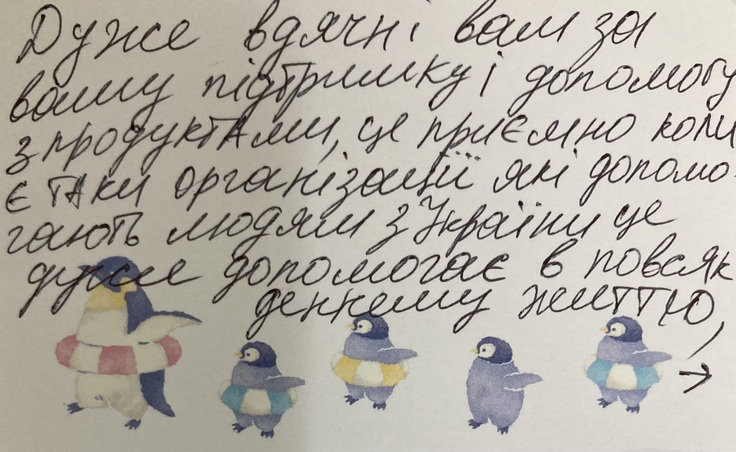 Дуже вдячні вам за
вашу підтримку і допомогу
з продуктами, це приємно коли
є таки організації які допомо-
гають людям з України це
дуже допомогає в повсяк
денкему життю,
→